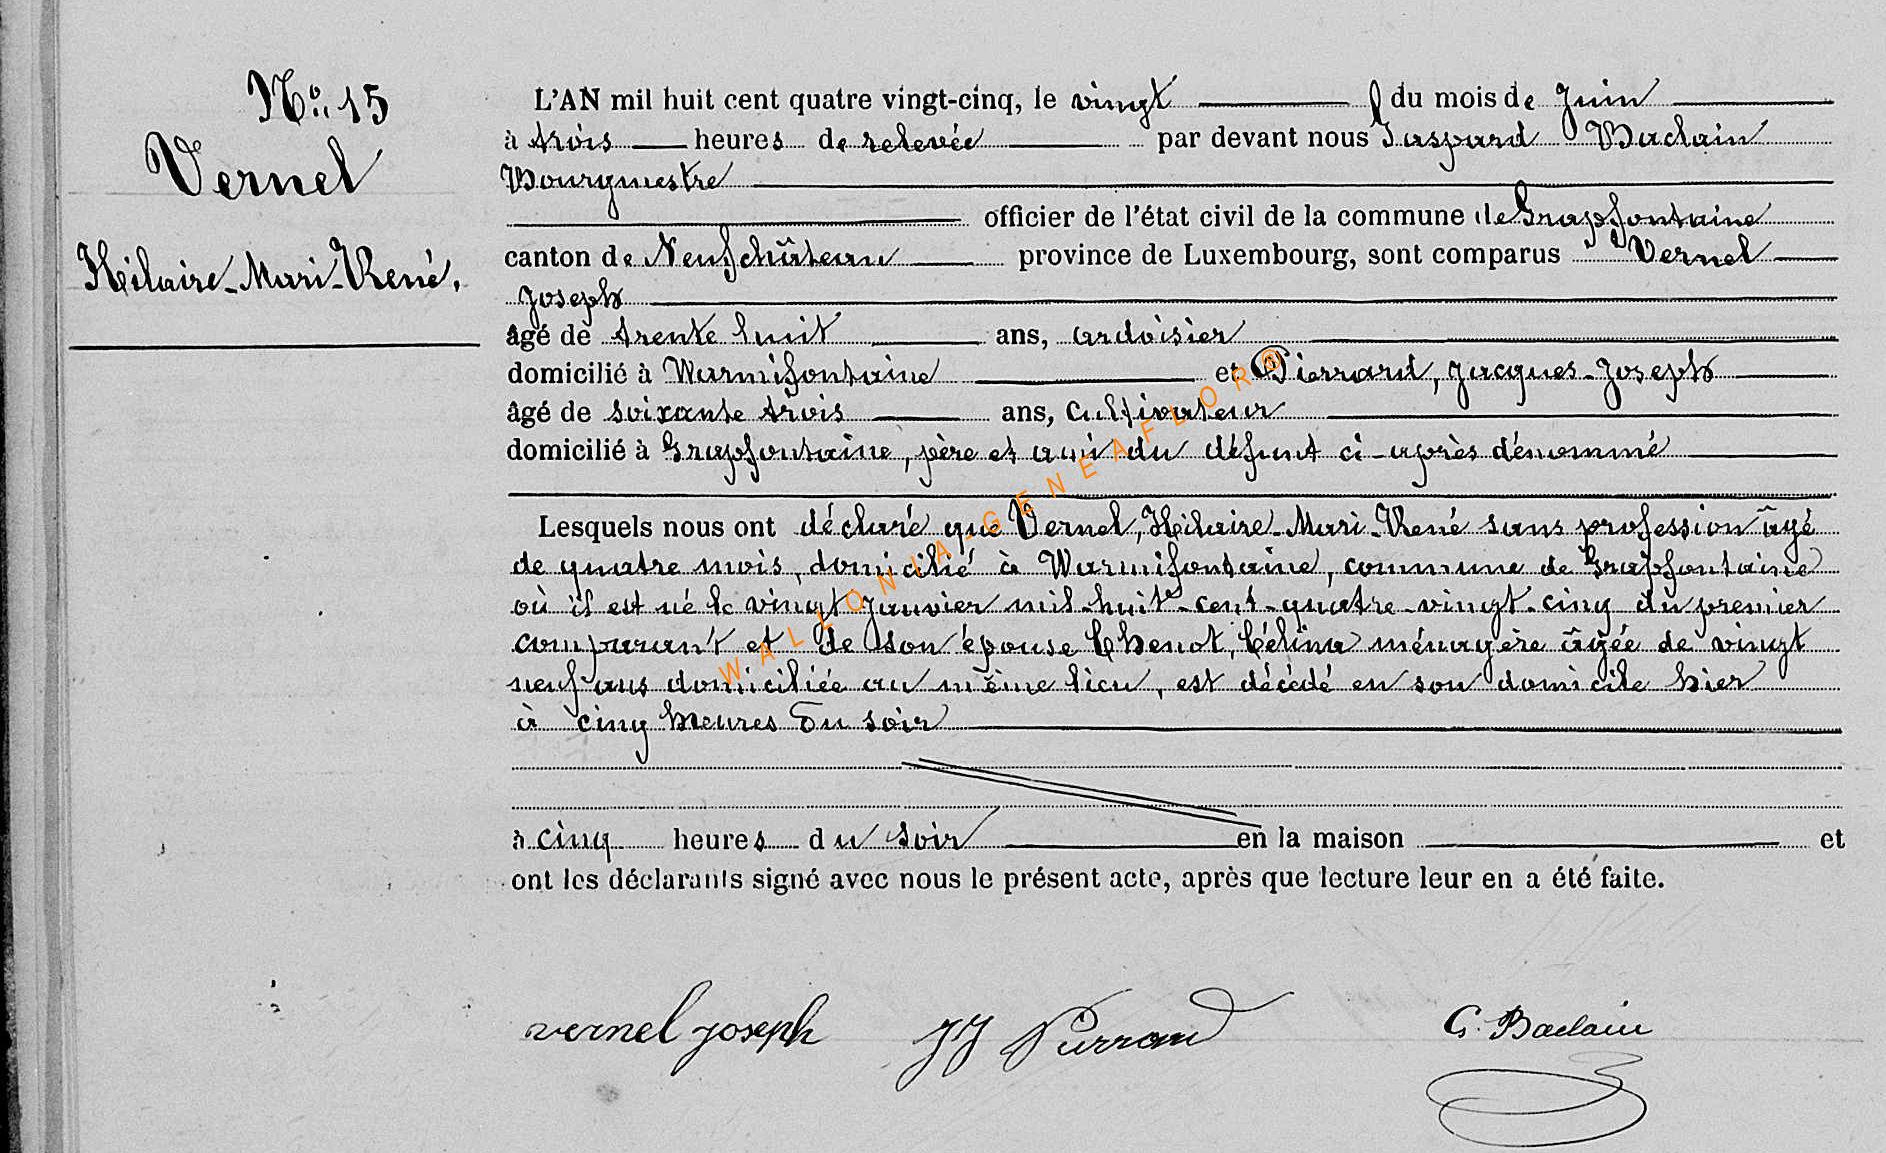 N° 15
Vernel
Hilaire-Mari-René.
L'AN mil huit cent quatre vingt-cinq, le vingt du mois de Juin
à trois heures de relevée par devant nous Gaspard Baclain
Bourgmestre
officier de l'état civil de la commune de Grapfontaine
canton de Neufchâteau province de Luxembourg, sont comparus Vernel
Joseph
âgé de trente huit ans, ardoisier
domicilié à Warmifontaine et Pierrard, Jacques-Joseph
âgé de soixante trois ans, Cultivateur
domicilié à Grapfontaine, père et ami du défunt ci-après dénommé
Lesquels nous ont déclaré que Vernel, Hilaire-Mari-René sans profession âgé
de quatre mois, domicilié à Warmifontaine, commune de Grapfontaine
où il est né le vingt Janvier mil-huit-cent-quatre-vingt-cinq du premier
comparant et de son épouse Chenot, Célina ménagère âgée de vingt
neuf ans domiciliée au même lieu, est décédé en son domicile hier
à cinq heures du soir
à cinq heures du soir en la maison et
ont les déclarants signé avec nous le présent acte, après que lecture leur en a été faite.
vernel joseph JJ Pierrard G. Baclain
WALLONIA-GENEAFLOR®